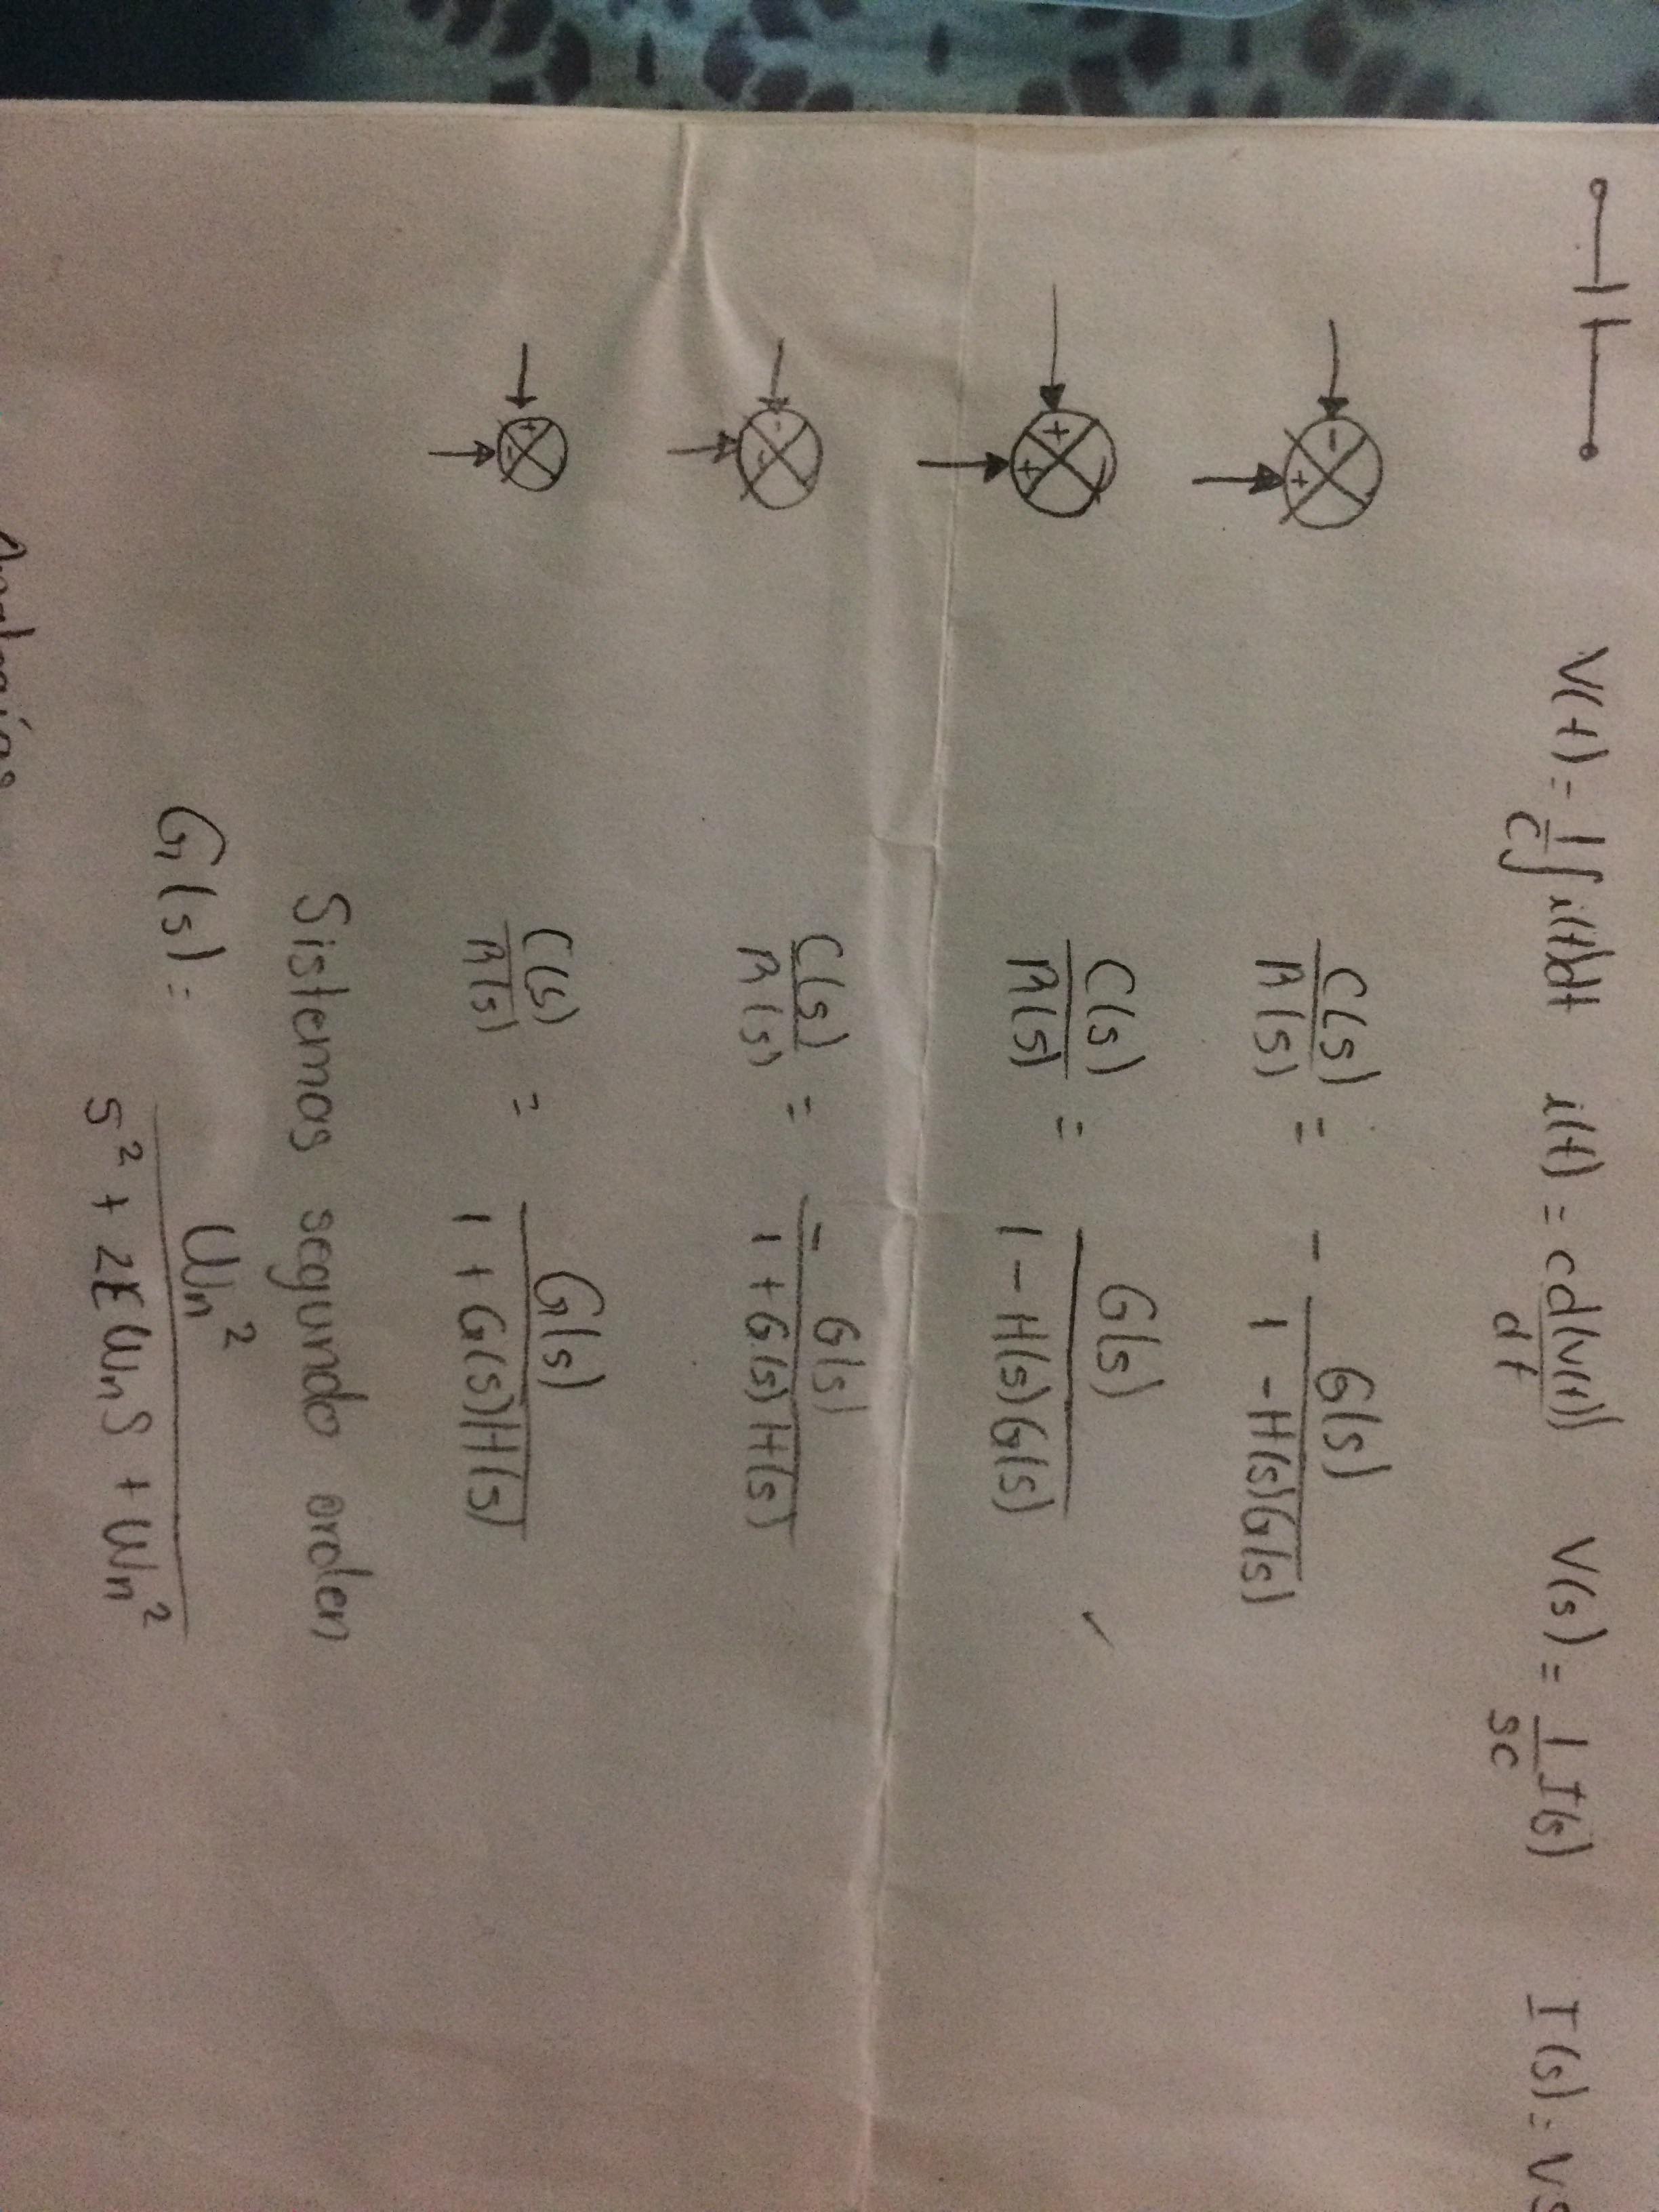 V(t) = 1/C ∫ i(t)dt   i(t) = c d(v(t))/dt   V(s) = 1/sc I(s)   I(s) = VS
- +
C(s)/R(s) = - G(s)/1 - H(s)G(s)
+ +
C(s)/R(s) = G(s)/1 - H(s)G(s) ✓
- -
C(s)/R(s) = - G(s)/1 + G(s)H(s)
+ -
C(s)/R(s) = G(s)/1 + G(s)H(s)
Sistemas segundo orden
G(s) = Wn²/s² + 2ξWnS + Wn²
Analogías